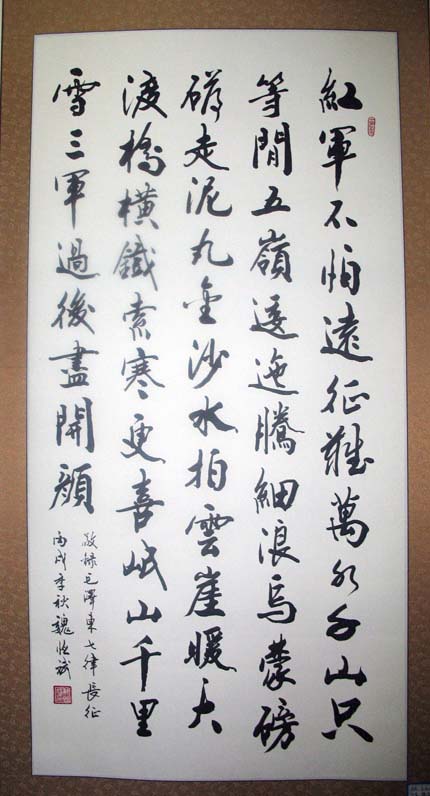 紅軍不怕遠征難萬水千山只
等閒五嶺逶迤騰細浪烏蒙磅
礴走泥丸金沙水拍雲崖暖大
渡橋橫鐵索寒更喜岷山千里
雪三軍過後盡開顏
敬錄毛澤東七律長征
丙戌季秋魏